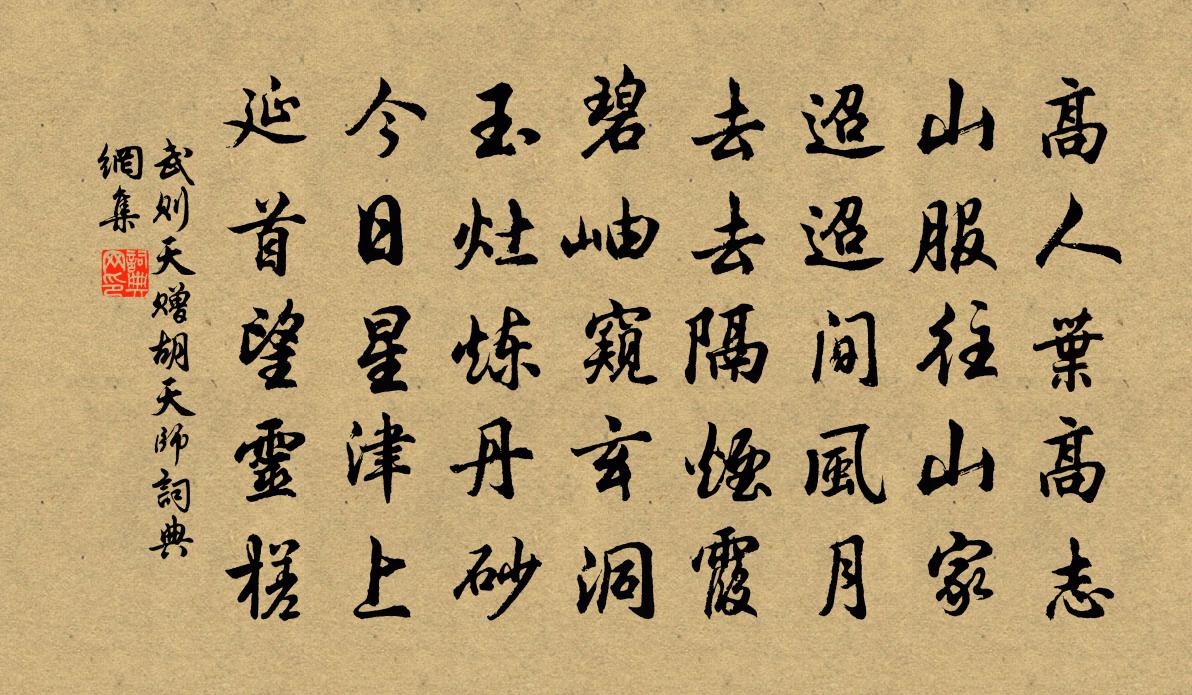 高人葉高志
山服往山家
迢迢间風月
去去隔煙霞
碧岫窺玄洞
玉灶炼丹砂
今日星津上
延首望靈槎
武则天赠胡天師詞典
網集
詞典
网印